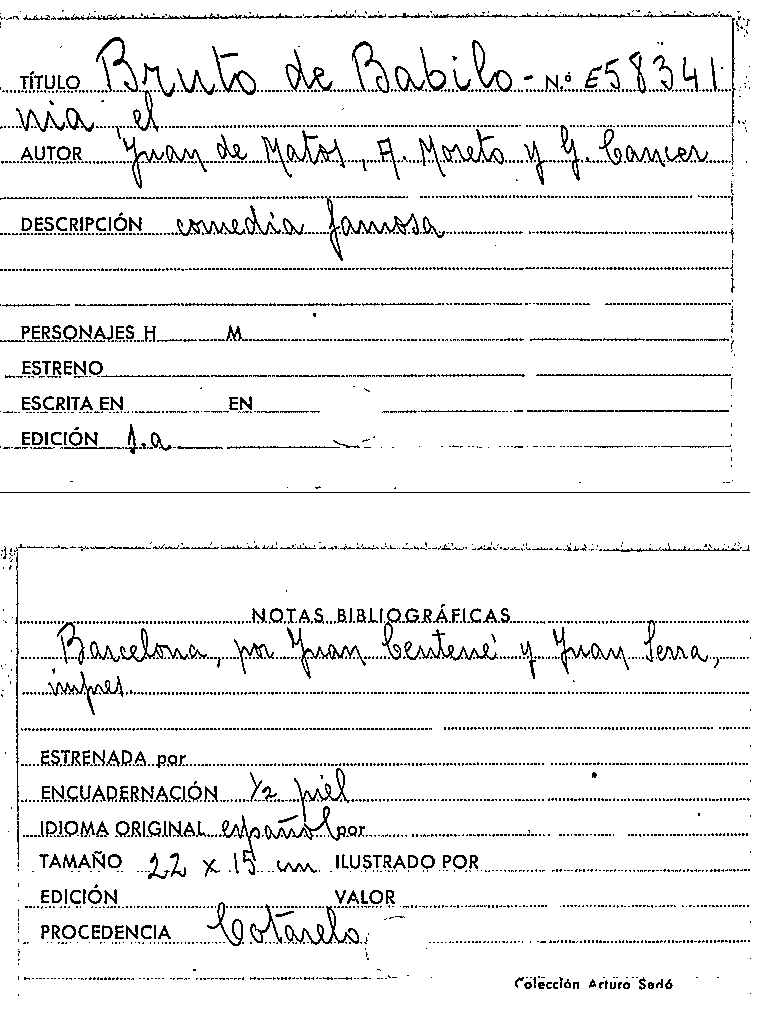 TÍTULO Bruto de Babilo- N.º E58341
nia, el
AUTOR Juan de Matos, A. Moreto y G. Cancer
DESCRIPCIÓN comedia famosa
PERSONAJES H M
ESTRENO
ESCRITA EN EN
EDICIÓN 1.a
NOTAS BIBLIOGRÁFICAS
Barcelona, por Juan Centené y Juan Serra,
impres.
ESTRENADA por
ENCUADERNACIÓN 1/2 piel
IDIOMA ORIGINAL español por
TAMAÑO 22 x 15 cm ILUSTRADO POR
EDICIÓN VALOR
PROCEDENCIA Cotarelo
Colección Arturo Sedó